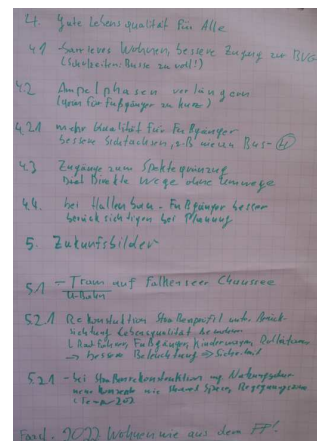 4. Gute Lebensqualität für Alle
4.1 barrierearmes Wohnen, bessere Zugang zur BVG
(Scholzeiten: Busse zu voll!)
4.2 Ampelphasen verlängern
(grün für Fußgänger zu kurz)
4.21 mehr Qualität für Fußgänger
bessere Sichtachsen, z.B. neuen Bus-H
4.3 Zugänge zum Spektegrünzug
und direkte Wege ohne Umwege
4.4. bei Hallenbau - Fußgänger besser
berücksichtigen bei Planung
5. Zukunftsbilder
5.1 - Tram auf Falkenseer Chaussee
U-Bahn
5.2.1 Rekonstruktion Straßenprofil unter Berück-
sichtigung Lebensqualität Bewohnern
Radfahrer, Fußgänger, Kinderwagen, Rollatoren
→ bessere Beleuchtung → Sicherheit
5.2.1 - bei Straßenrekonstruktion
neue Konzepte wie Shared Space, Begegnungszone
(Tempo 20)
2022 Wohnen wie aus dem FF!